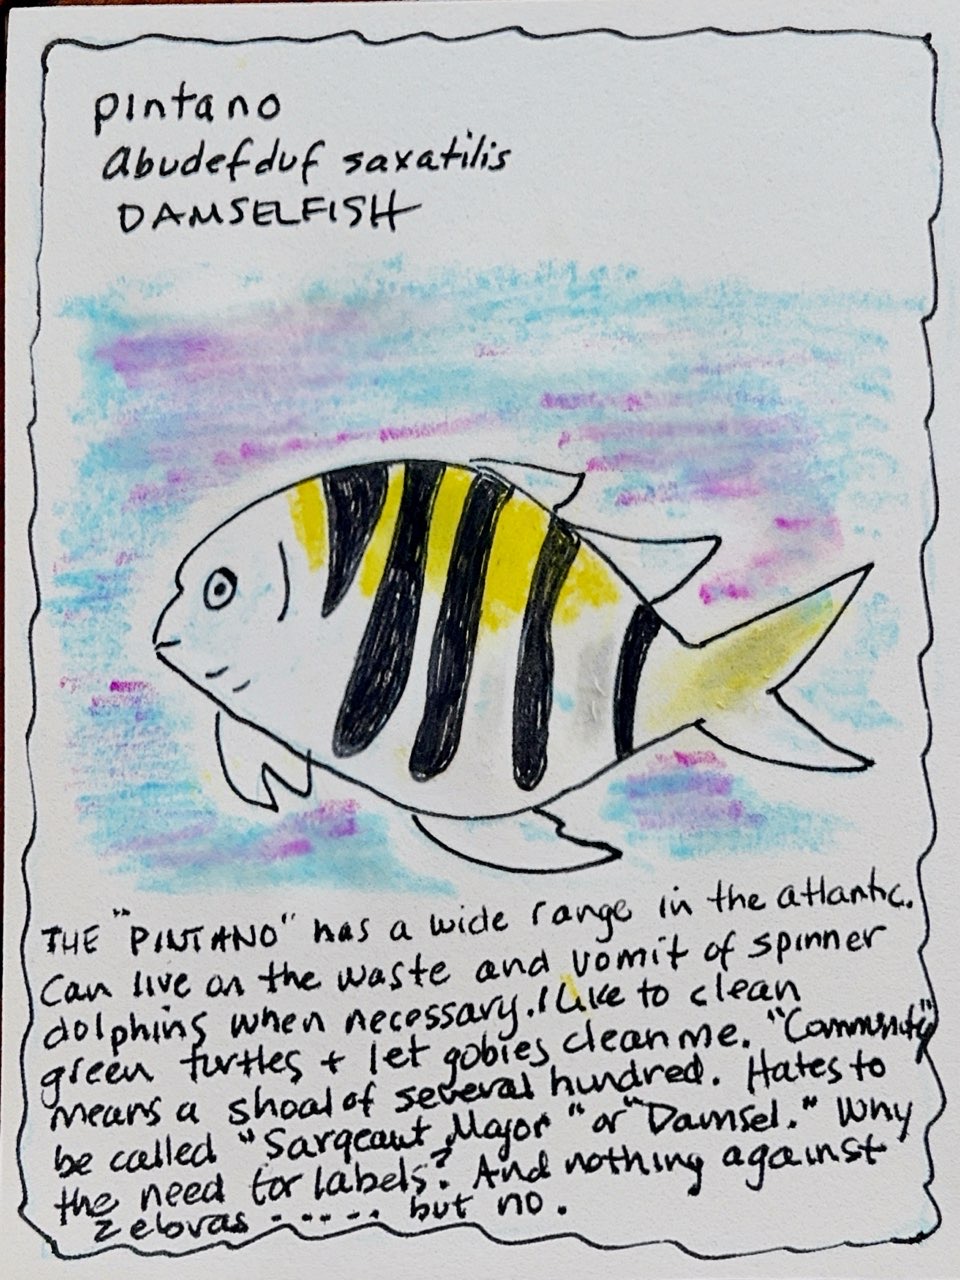 pintano
abudefduf saxatilis
DAMSELFISH
THE "PINTANO" has a wide range in the atlantic.
Can live on the waste and vomit of spinner
dolphins when necessary. I like to clean
green turtles + let gobies clean me. "Community"
means a shoal of several hundred. Hates to
be called "Sargeant Major" or "Damsel." Why
the need for labels? And nothing against
zebras ..... but no.